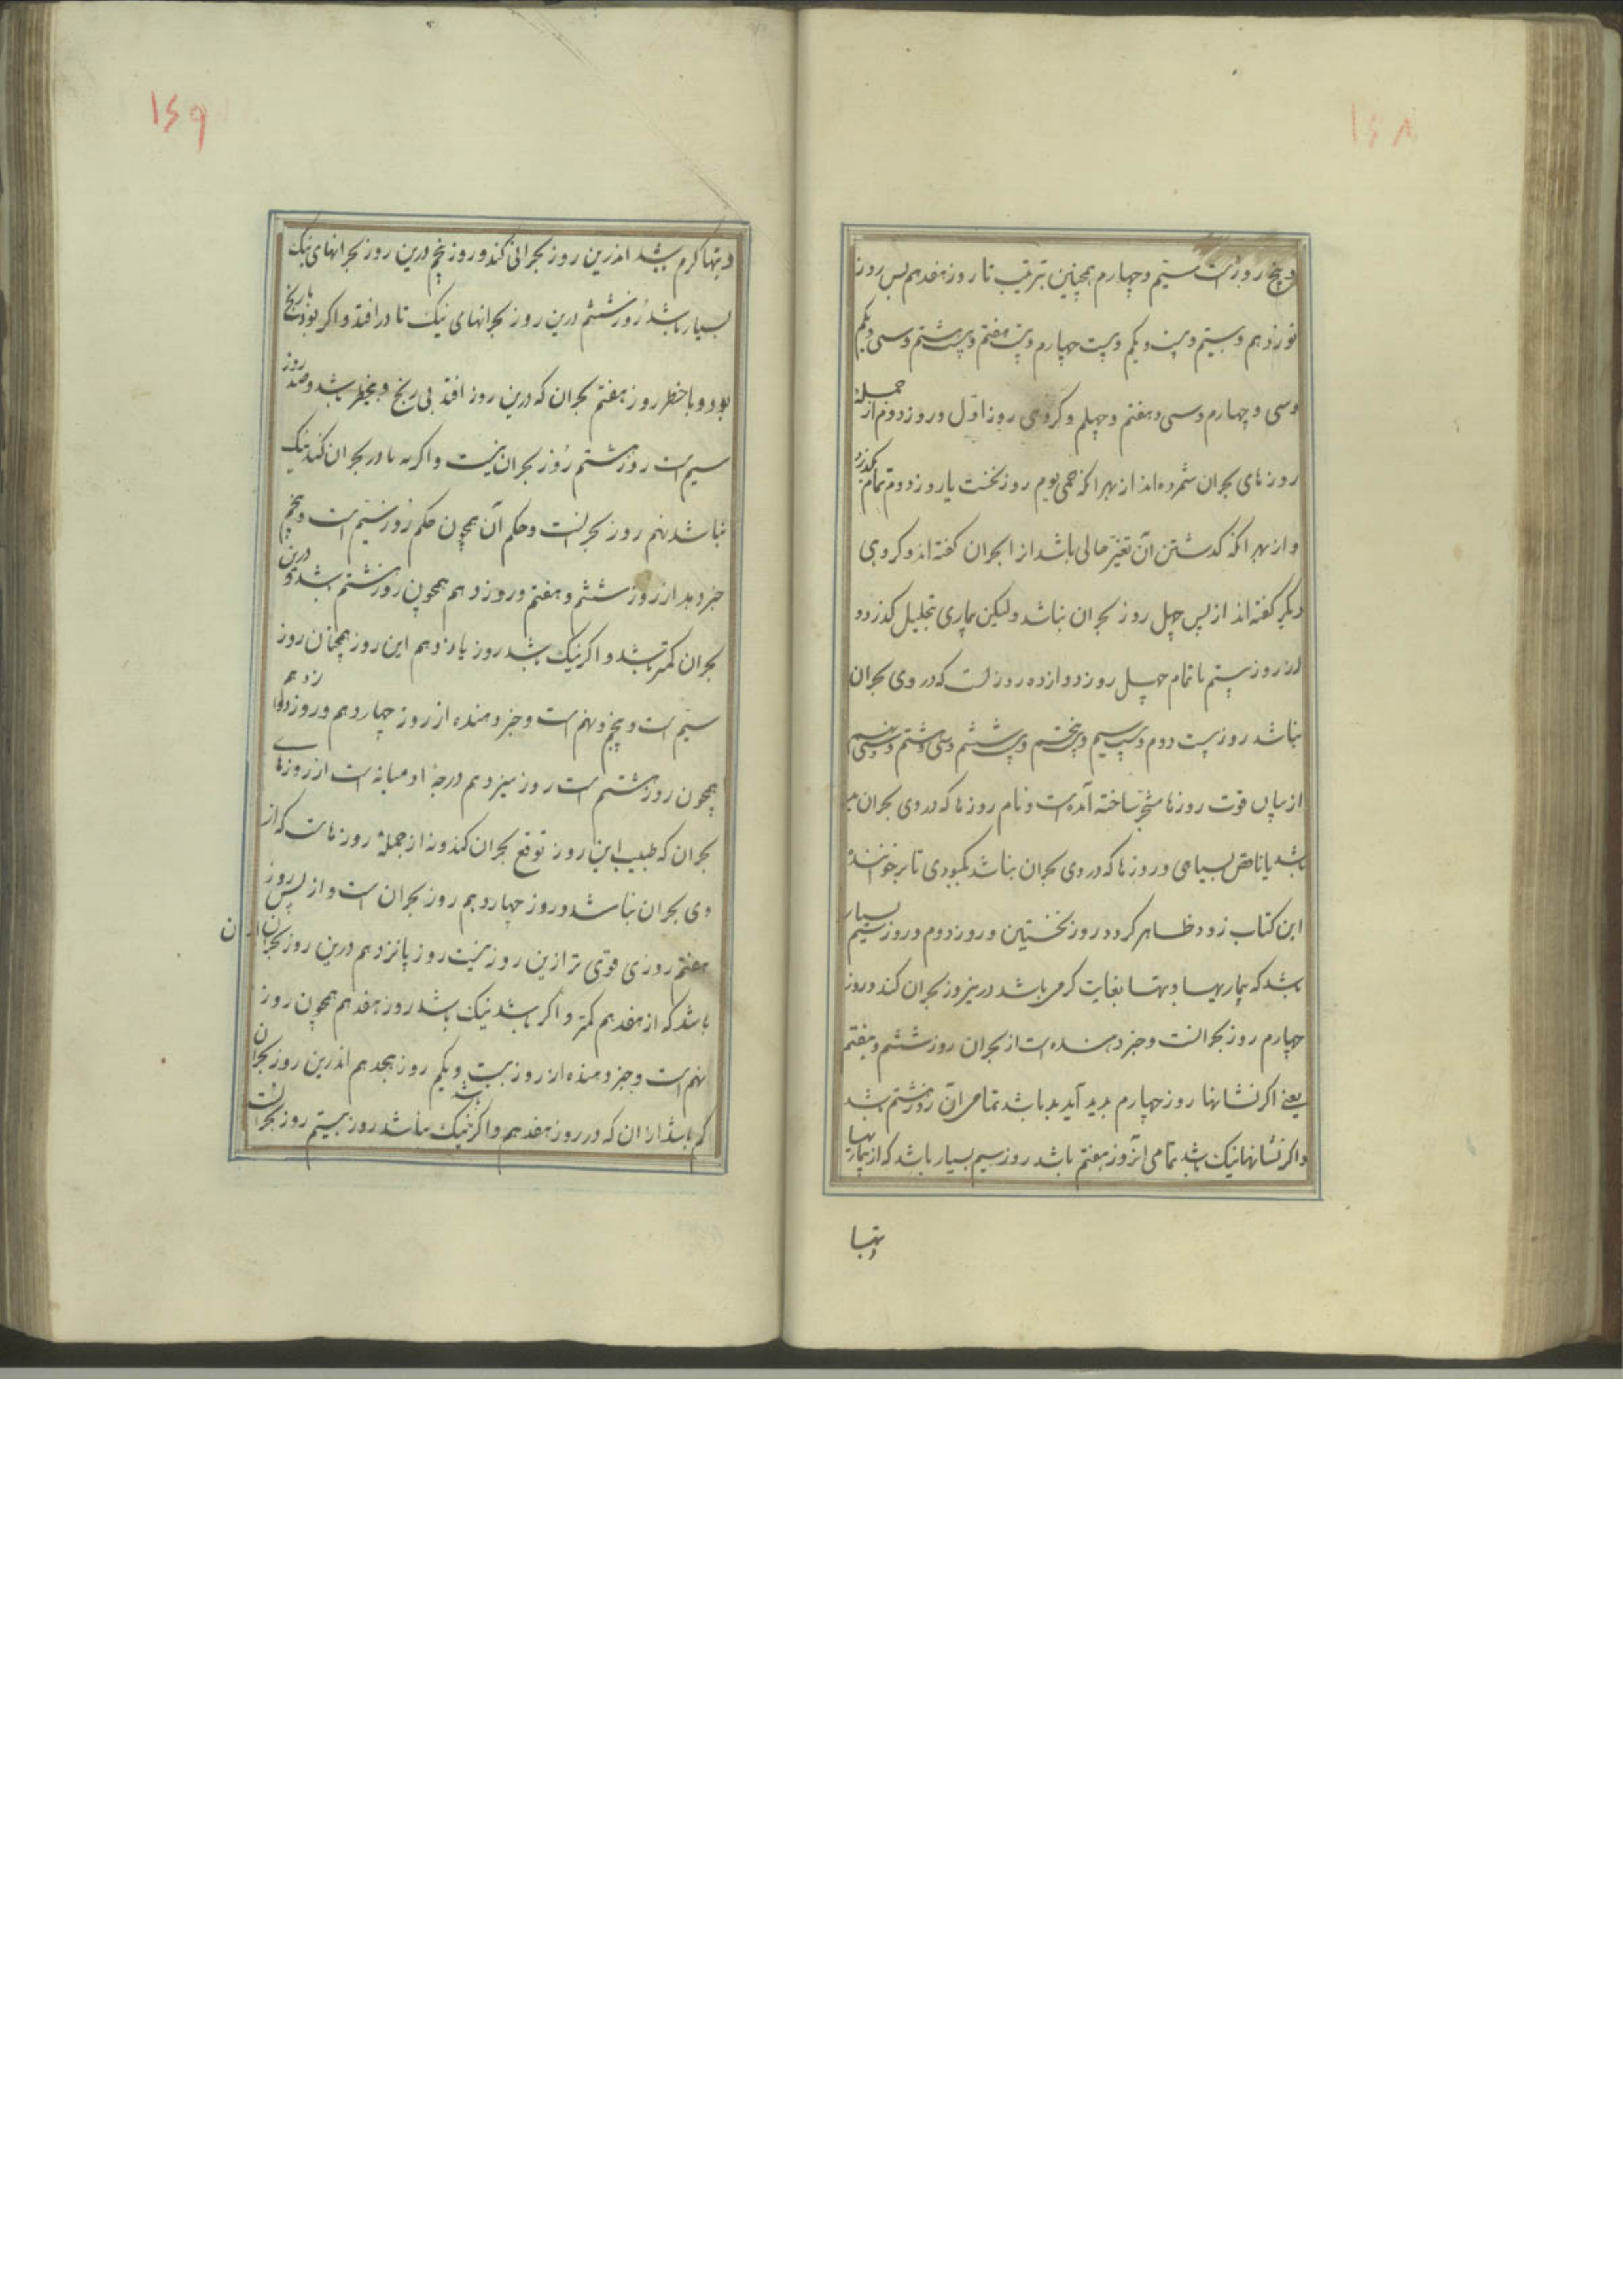 ۱۶۸
و پنج روزست سیّم و چهارم همچنین بترتیب تا روز هفدهم پس روز
نوزدهم و بیستم و بیست و یکم و بیست چهارم و بیست هفتم و بیست هشتم و سی و یکم
و سی و چهارم و سی و هفتم و چهلم و کروهی روز اوّل و روز دوم از جمله
روزهای بحران شمرده‌اند از بهر انکه حمی یوم روز نخست یا روز دوم تمام بکذرد
و از بهر انکه کذشتن آن تغیّر حالی باشد انرا بحران کفته‌اند و کروهی
دیکر کفته‌اند از پس چهل روز بحران نباشد ولیکن بیماری بتحلیل کذرد و
از روز بیستم تا تمام چهل روز دوازده روز است که در وی بحران
نباشد روز بیست دوم و بیست سیم و بیست پنجم و بیست ششم و سی و هشتم و سی و نهم
از بیان قوت روزها مشجر ساخته آمده است و نام روزها که در وی بحران
باشد یا ناقص بسیاهی و روزها که در وی بحران نباشد بکبودی تا بر خواننده
این کتاب زود ظاهر کردد روز نخستین و روز دوم و روز سیم بسیار
باشد که بیماریها و تبها بغایت کرم باشد درین روز بحران کند و روز
چهارم روز بحرانست و خبر دهنده است از بحران روز ششم و هفتم
یعنی اکر نشانها روز چهارم پدید آید بد باشد تمامی آن روز ششم باشد
و اکر نشانها نیک باشد تمامی آن روز هفتم باشد روز سیم بسیار باشد که از بیماریها
و تبها
۱۶۹
و تبها کرم باشد اندرین روز بحرانی کند و روز پنجم درین روز بحرانهای نیک
بسیار باشد روز ششم درین روز بحرانهای نیک تا در افتد و اکر بود با رنج
بود و با خطر روز هفتم بحران که درین روز افتد بی رنج و بیخطر باشد و ضد روز
سیم است روز هشتم روز بحران نیست و اکر بنادر بحران کند نیک
نباشد نهم روز بحرانست و حکم آن همچون حکم روز سیّم است و پنجم
خبر دهد از روز ششم و هفتم و روز دهم همچون روز هشتم باشد و درین
بحران کمتر باشد و اکر نیک باشد روز یازدهم این روز همچنان روز
سیّم است و پنجم و نهم است و خبر دهنده از روز چهاردهم و روز دوازدهم
همچون روز هشتم است روز سیزدهم درجهٔ او میانه است از روزهای
بحران که طبیب این روز توقع بحران کند و نه از جملهٔ روزهاست که از
وی بحران نباشد و روز چهاردهم روز بحران است و از پس روز
هفتم روزی قوی تر ازین روز نیست روز پانزدهم درین روز بحران
باشد که از هفدهم کمتر و اکر باشد نیک باشد روز هفدهم همچون روز
نهم است و خبر دهنده از روز بیست و یکم روز هجدهم اندرین روز بحران
کم باشد از ان که در روز هفدهم و اکر باشد نیک باشد روز بیستم روز بحرانست